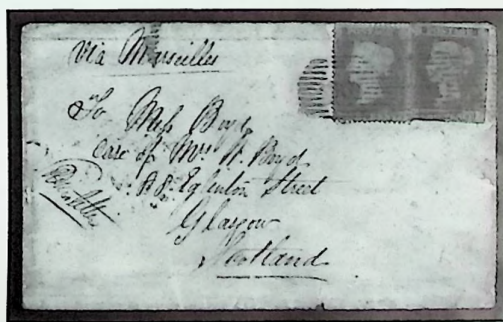 Via Marseilles
To Miss Boyd
Care of Mrs W. Boyd
88 Eglinton Street
Glasgow
Scotland